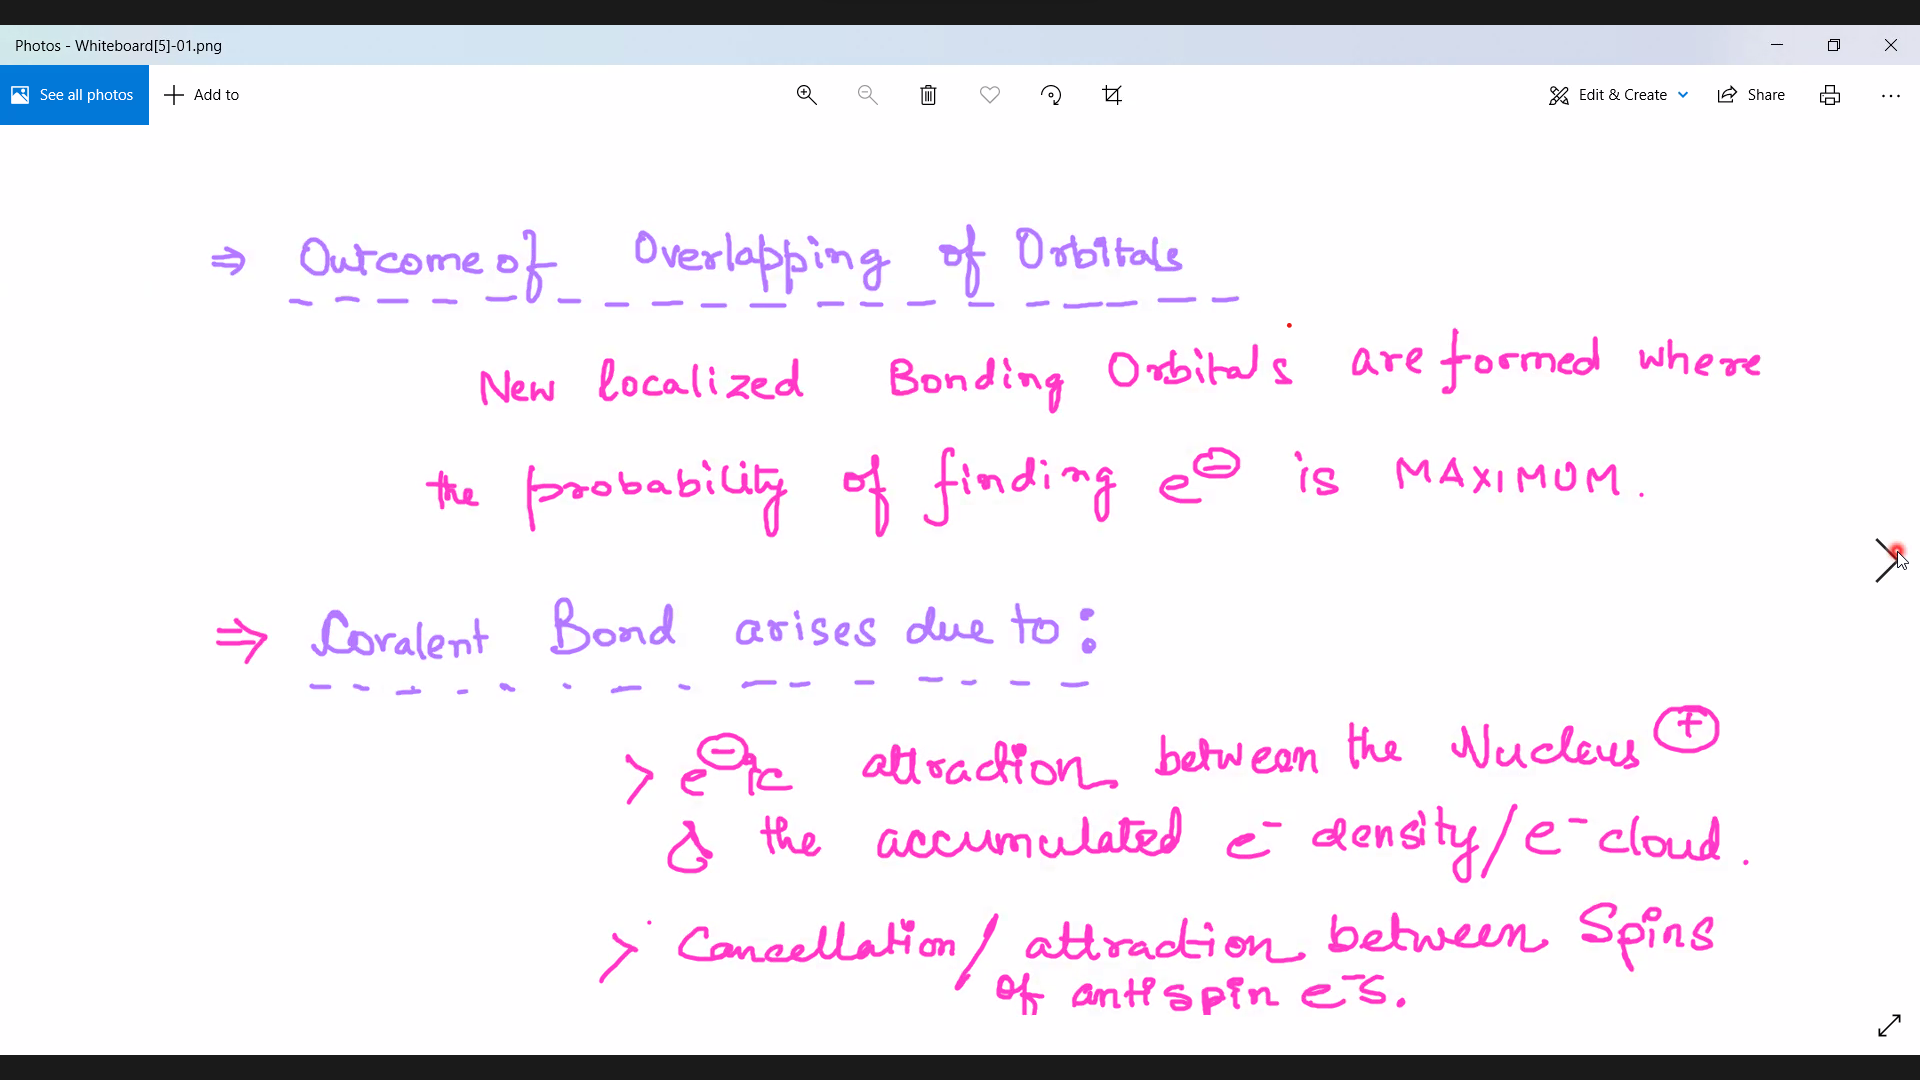 Photos - Whiteboard[5]-01.png
See all photos
Add to
Edit & Create
Share
⇒ Outcome of Overlapping of Orbitals
New localized Bonding Orbitals are formed where
the probability of finding e⊖ is MAXIMUM.
⇒ Covalent Bond arises due to:
> e⊖ic attraction between the Nucleus ⊕
& the accumulated e⁻ density/e⁻ cloud.
> Cancellation/attraction between Spins
of antispin e⁻s.